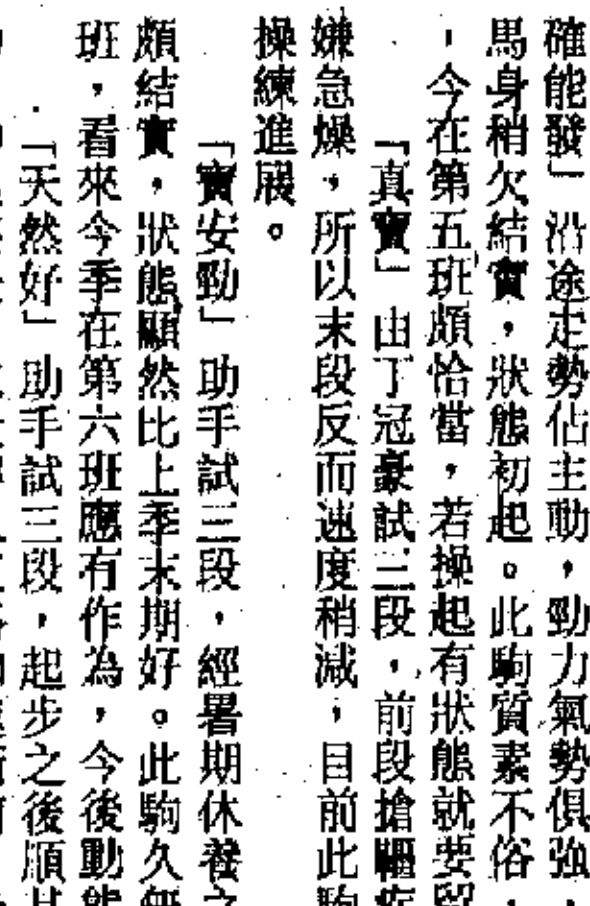 確能發」沿途走勢佔主動，勁力氣勢俱強，
馬身稍欠結實，狀態初起。此駒質素不俗，
，今在第五班頗恰當，若操起有狀態就要留
「真寶」由丁冠豪試三段，前段搶軀疾
嫌急燥，所以末段反而速度稍減，目前此駒
操練進展。
「寶安勁」助手試三段，經署期休養之
頗結實，狀態顯然比上季末期好。此駒久無
班，看來今季在第六班應有作為，今後動態
「天然好」助手試三段，起步之後順其